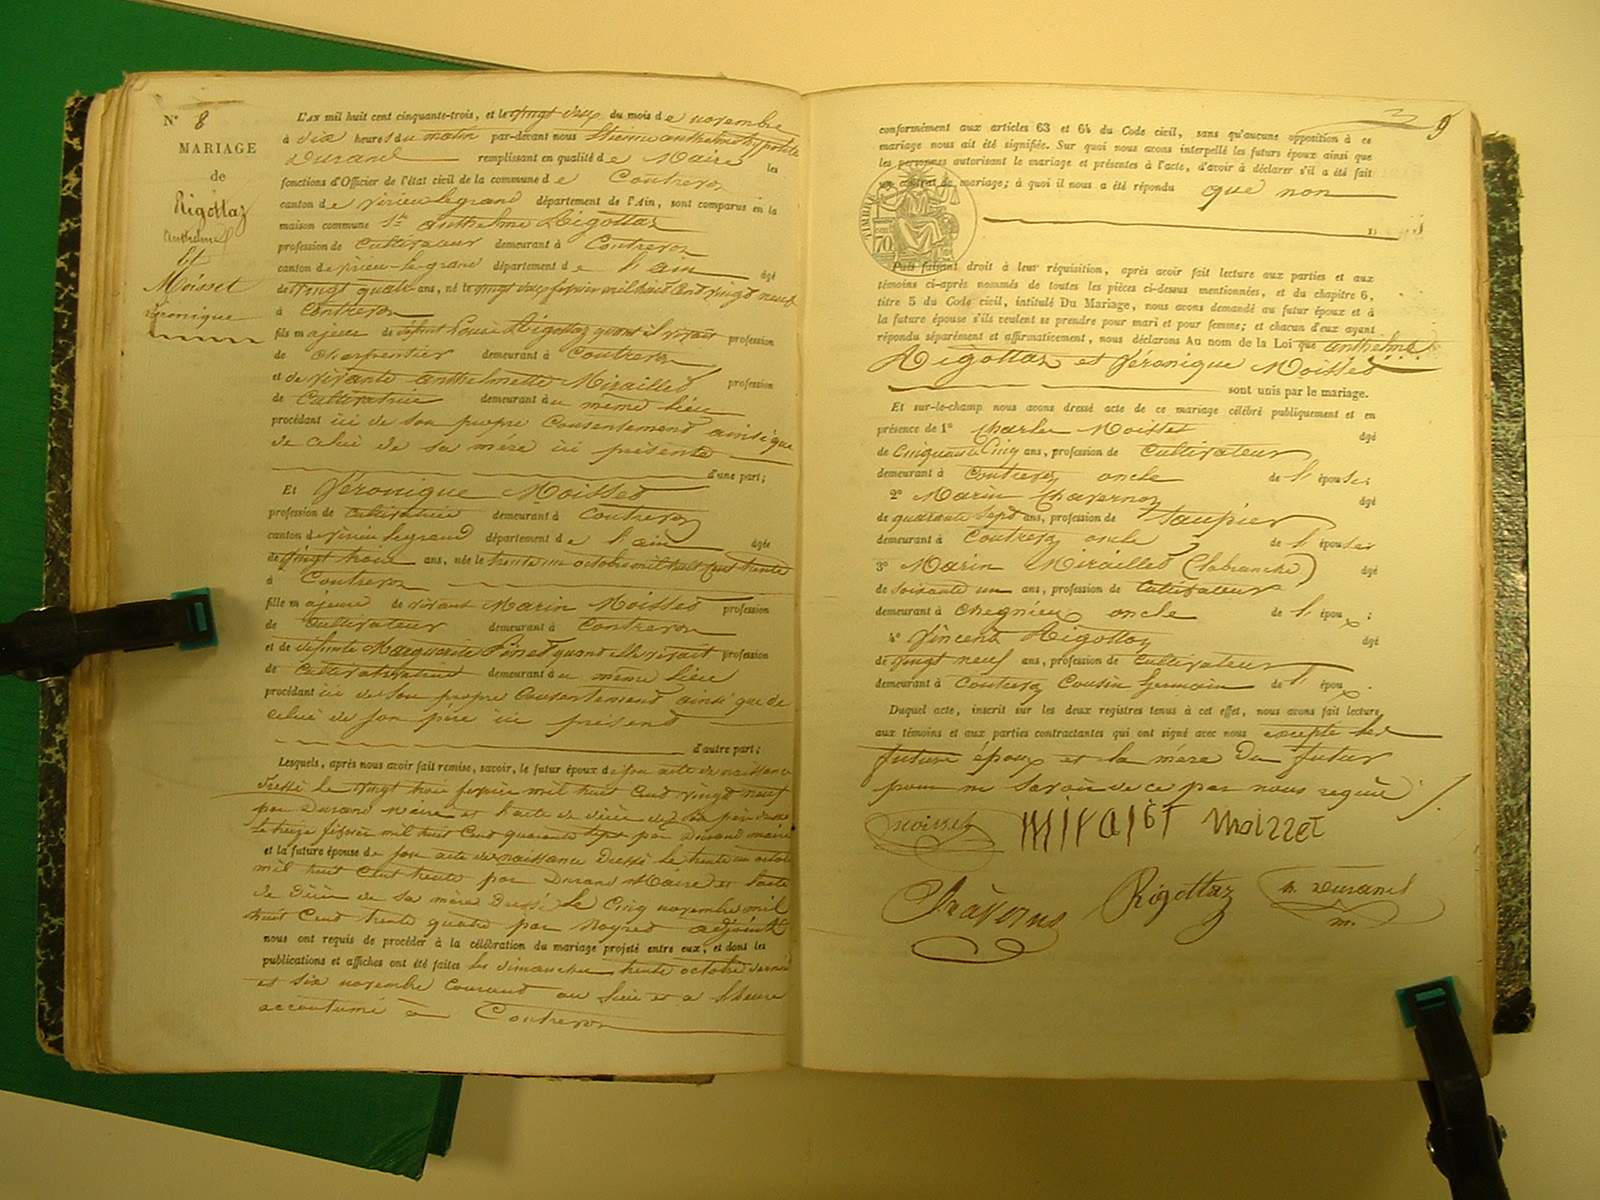 N° 8
MARIAGE
de
Rigottaz
Anthelme
Et
Moisset
Véronique
L'AN mil huit cent cinquante-trois, et le vingt deux du mois de novembre
à dix heures du matin par-devant nous Etienne anthelme hyppolite
Durand remplissant en qualité de Maire les
fonctions d'Officier de l'état civil de la commune de Contrevoz
canton de virieu legrand département de l'Ain, sont comparus en la
maison commune 1° anthelme Rigottaz
profession de Cultivateur demeurant à Contrevoz
canton de virieu-le-grand département de l'ain âgé
de vingt quatre ans, né le vingt deux fevrier mil huit Cent vingt neuf
à Contrevoz
fils majeur de défunt Louis Rigottaz quand il vivait profession
de Charpentier demeurant à Contrevoz
et de vivante anthelmette Miraillet profession
de Cultivatrice demeurant au même Lieu
procédant ici de son propre Consentement ainsi que
de celui de sa mère ici présente
d'une part;
Et Véronique Moisset
profession de cultivatrice demeurant à Contrevoz
canton de virieu legrand département de l'ain âgée
de vingt trois ans, née le trente un octobre mil huit Cent trente
à Contrevoz
fille majeure de vivant Marin Moisset profession
de Cultivateur demeurant à Contrevoz
et de défunte Marguerite Pinet quand elle vivait profession
de Cultivatrice demeurant au même Lieu
procédant ici de son propre Consentement ainsi que de
celui de son père ici présent
d'autre part;
Lesquels, après nous avoir fait remise, savoir, le futur époux de son acte de naissance
Dressé le vingt trois fevrier mil huit Cent vingt neuf
par Durand Maire et l'acte de décès de son père dressé
le treize fevrier mil huit Cent quarante sept par Durand maire
et la future épouse de son acte de naissance Dressé le trente un octobre
mil huit Cent trente par Durand Maire et l'acte
de décès de sa mère Dressé le Cinq novembre mil
huit Cent trente quatre par adjoint
nous ont requis de procéder à la célébration du mariage projeté entre eux, et dont les
publications et affiches ont été faites les dimanches trente octobre dernier
et six novembre Courant au lieu et a l'heure
accoutumé à Contrevoz
9
conformément aux articles 63 et 64 du Code civil, sans qu'aucune opposition à ce
mariage nous ait été signifiée. Sur quoi nous avons interpellé les futurs époux ainsi que
les personnes autorisant le mariage et présentes à l'acte, d'avoir à déclarer s'il a été fait
un contrat de mariage; à quoi il nous a été répondu que non
TIMBRE
70
Puis faisant droit à leur réquisition, après avoir fait lecture aux parties et aux
témoins ci-après nommés de toutes les pièces ci-dessus mentionnées, et du chapitre 6,
titre 5 du Code civil, intitulé Du Mariage, nous avons demandé au futur époux et à
la future épouse s'ils veulent se prendre pour mari et pour femme; et chacun d'eux ayant
répondu séparément et affirmativement, nous déclarons Au nom de la Loi que anthelme
Rigottaz et Véronique Moisset
sont unis par le mariage.
Et sur-le-champ nous avons dressé acte de ce mariage célébré publiquement et en
présence de 1° Charles Moisset âgé
de Cinquante Cinq ans, profession de Cultivateur
demeurant à Contrevoz oncle de l'épouse;
2° Marin Chavernoz âgé
de quarante sept ans, profession de
demeurant à Contrevoz oncle de l'épouse
3° Marin Miraillet (Labranche) âgé
de soixante un ans, profession de Cultivateur
demeurant à Chegnieu oncle de l'époux;
4° Vincent Rigottaz âgé
de vingt neuf ans, profession de Cultivateur
demeurant à Contrevoz Cousin Germain de l'époux.
Duquel acte, inscrit sur les deux registres tenus à cet effet, nous avons fait lecture,
aux témoins et aux parties contractantes qui ont signé avec nous excepté les
future époux et la mère du futur
pour ne savoir de ce par nous requis
moisset Miraiet Moizzet
Rigottaz h. Durand
m.